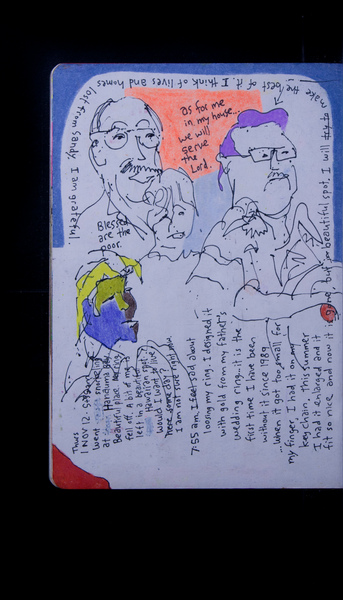 as for me
in my house...
we will
serve
the
Lord.
Blessed
are the
poor.
Thurs
1 NOV 12.
went snorkeling
at Hanauma Bay
Beautiful place. My ring
fell off, a bit of me
left in a beautiful
Hawaiian spot.
Would I want to live
here some day?
I am not sure right now.
7:55 am. I feel sad about
loosing my ring. I designed it
with gold from my father's
wedding ring. it is the
first time I have been
without it since 1989.
when it got too small for
my finger, I had it on my
key chain. this summer
I had it enlarged and it
fit so nice and now it is gone, but in a beautiful spot. I will try to
make the best of it. I think of lives and homes
lost from Sandy. I am grateful